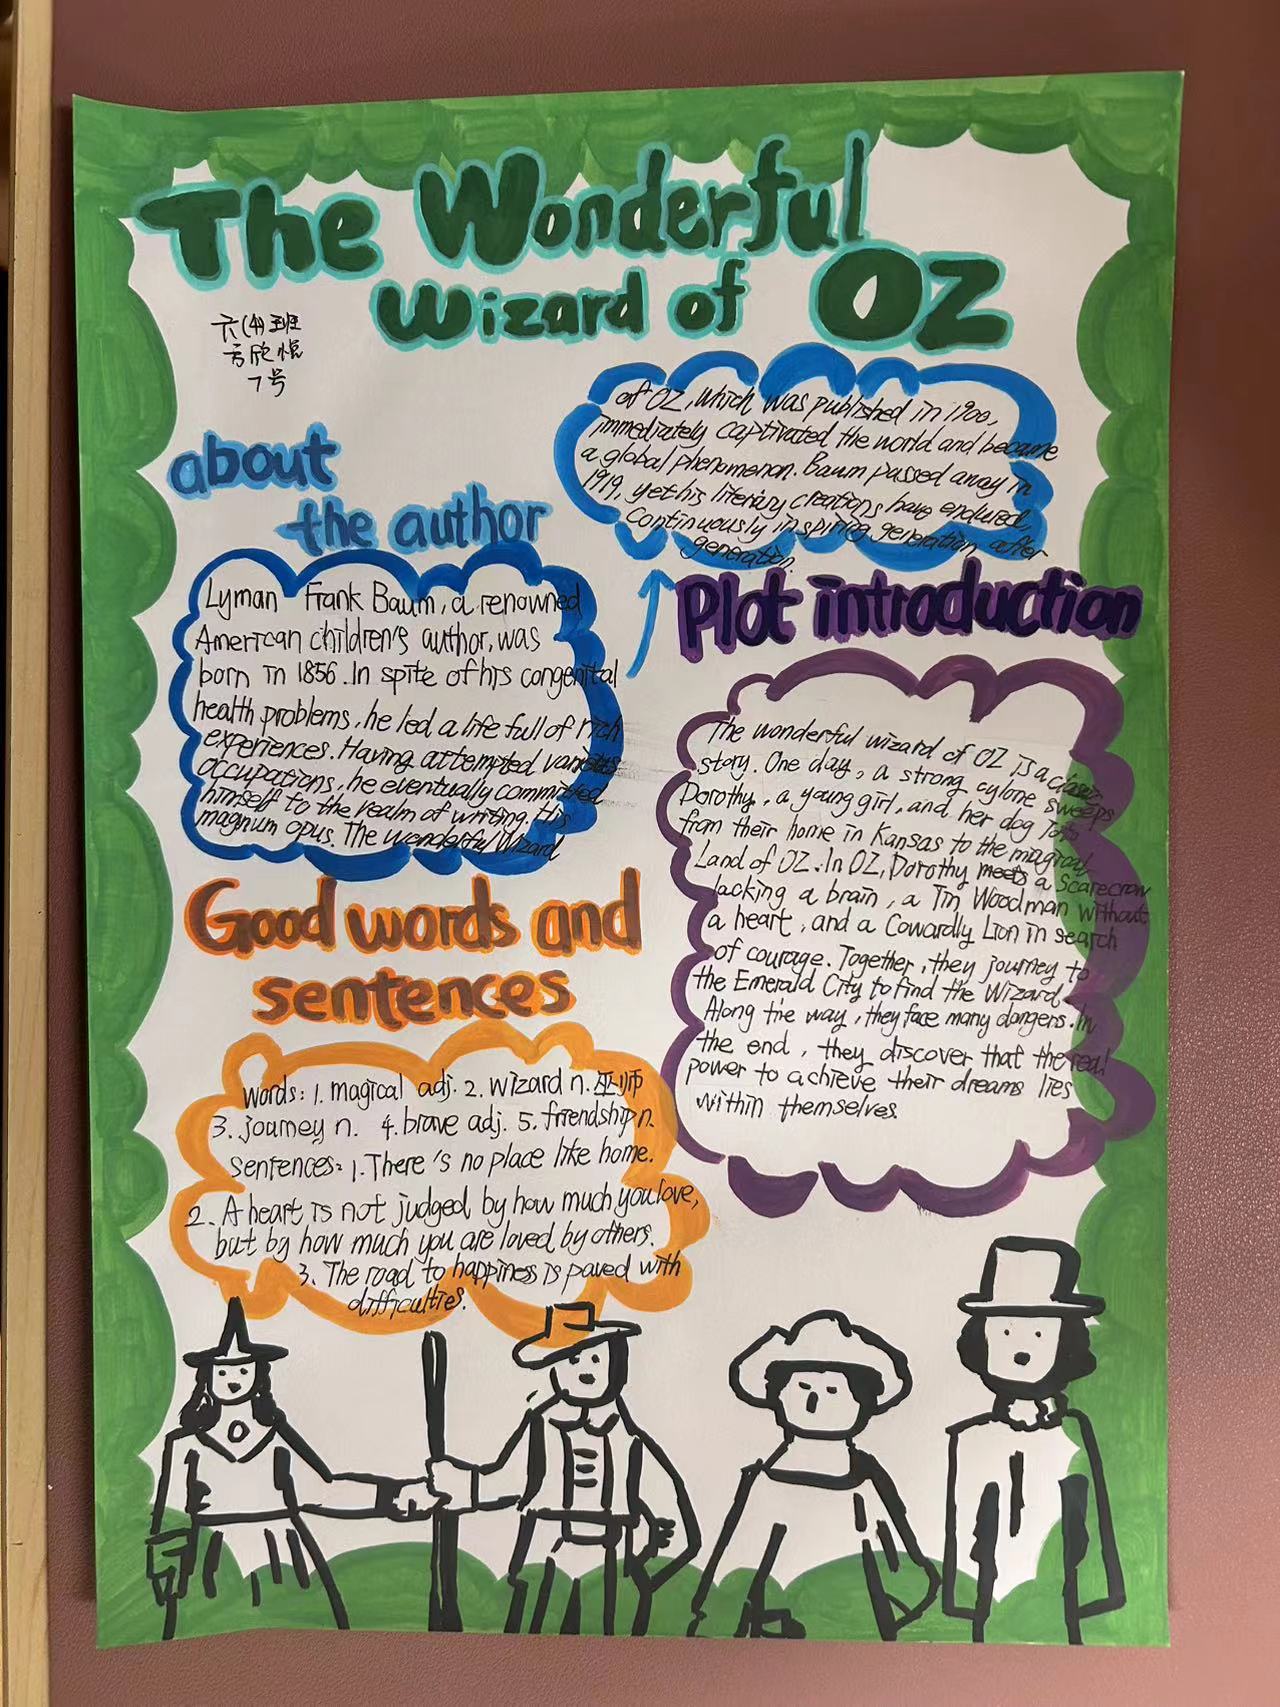 The Wonderful
Wizard of OZ
六(4)班
方欣悦
7号
about
the author
Lyman Frank Baum, a renowned
American children's author, was
born in 1856. In spite of his congenital
health problems, he led a life full of rich
experiences. Having attempted various
occupations, he eventually committed
himself to the realm of writing. His
magnum opus. The wonderful Wizard
of OZ, which was published in 1900,
immediately captivated the world and became
a global phenomenon. Baum passed away in
1919, yet his literary creations have endured,
continuously inspiring generation after
generation.
Plot introduction
The wonderful wizard of OZ is a classic
story. One day, a strong cylone sweeps
Dorothy, a young girl, and her dog Toto
from their home in Kansas to the magical
Land of OZ. In OZ, Dorothy meets a Scarecrow
lacking a brain, a Tin Woodman without
a heart, and a Cowardly Lion in search
of courage. Together, they journey to
the Emerald City to find the Wizard.
Along the way, they face many dangers. In
the end, they discover that the real
power to achieve their dreams lies
within themselves.
Good words and
sentences
words: 1. magical adj. 2. wizard n. 巫师
3. journey n. 4. brave adj. 5. friendship n.
sentences: 1. There's no place like home.
2. A heart is not judged by how much you love,
but by how much you are loved by others.
3. The road to happiness is paved with
difficulties.